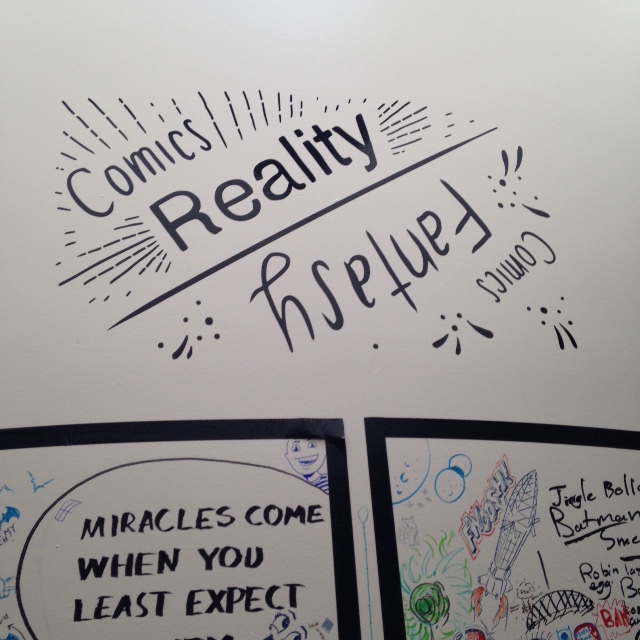 Comics
Reality
Fantasy
Comics
MIRACLES COME
WHEN YOU
LEAST EXPECT
Jingle Bells
Batman
Sme
Robin
egg